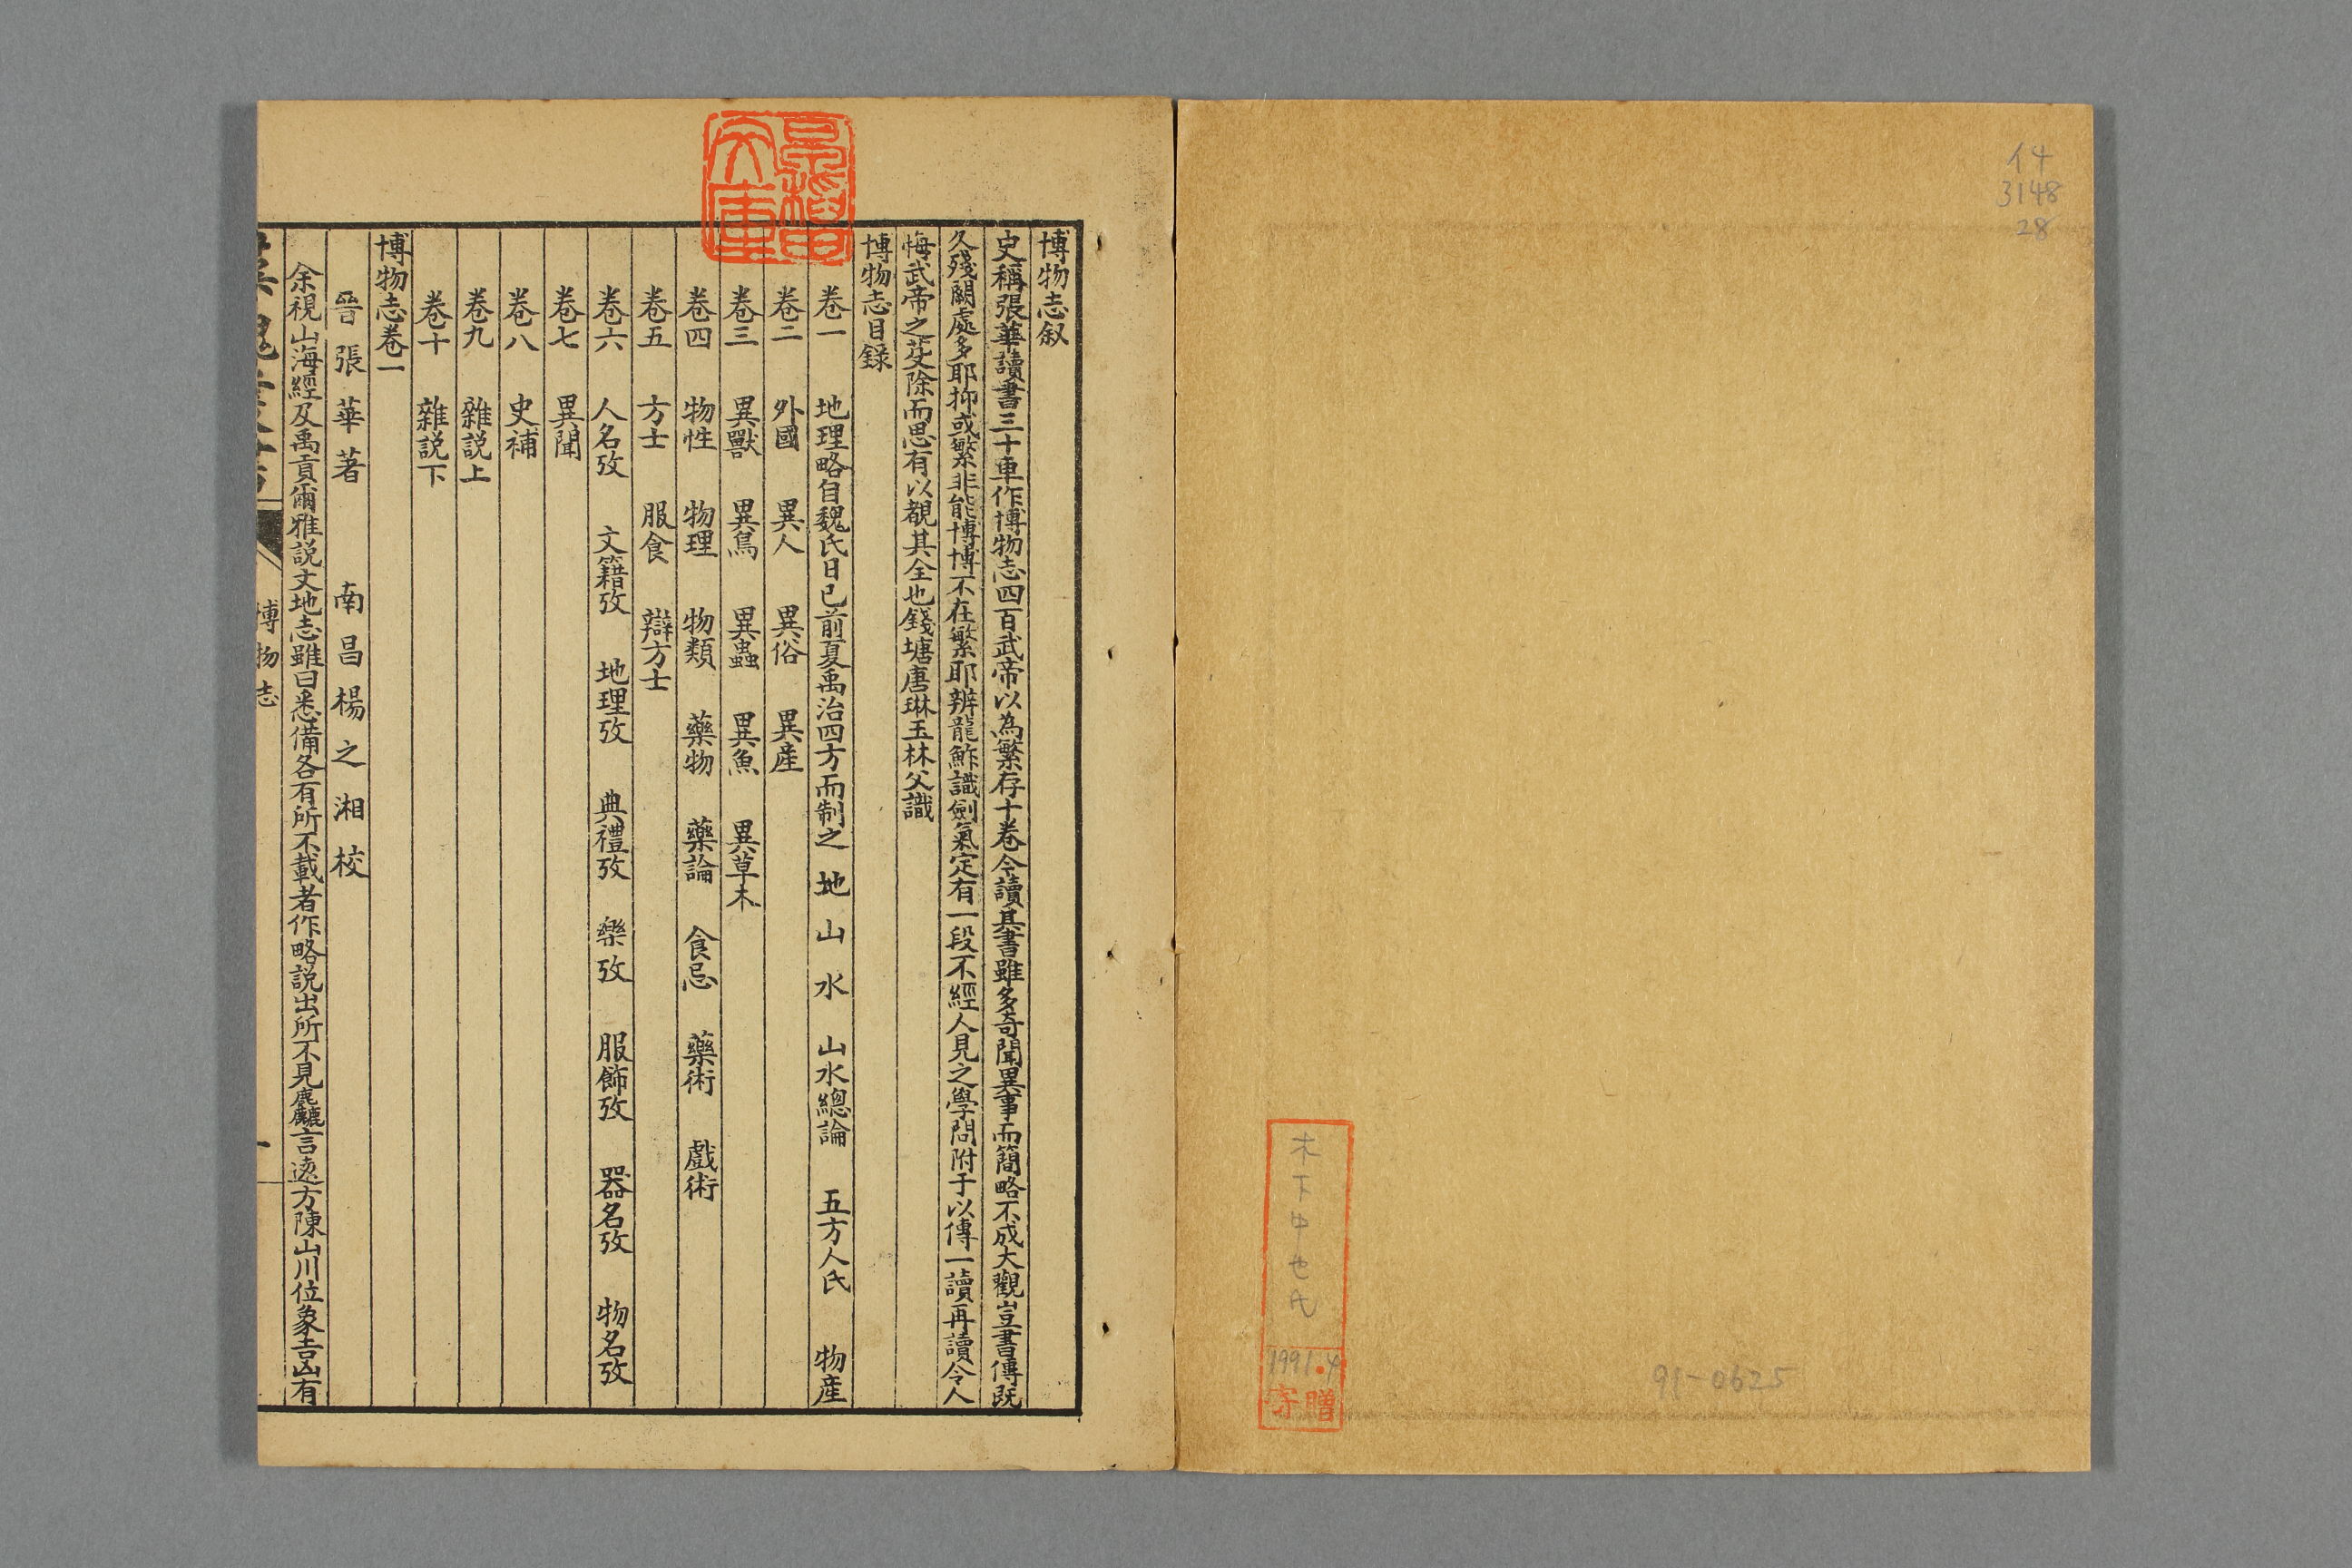 イ4
3148
28
木下中也氏
1991.4
寄贈
91-0625
博物志叙
史稱張華讀書三十車作博物志四百武帝以為繁存十卷今讀其書雖多奇聞異事而簡略不成大觀豈書傳既
久殘闕處多耶抑或繁非能博博不在繁耶辨龍鮓識劍氣定有一段不經人見之學問附于以傳一讀再讀令人
悔武帝之芟除而思有以覩其全也錢塘唐琳玉林父識
博物志目録
卷一 地理略自魏氏日已前夏禹治四方而制之 地 山 水 山水總論 五方人氏 物産
卷二 外國 異人 異俗 異産
卷三 異獸 異鳥 異蟲 異魚 異草木
卷四 物性 物理 物類 藥物 藥論 食忌 藥術 戲術
卷五 方士 服食 辯方士
卷六 人名攷 文籍攷 地理攷 典禮攷 樂攷 服飾攷 器名攷 物名攷
卷七 異聞
卷八 史補
卷九 雜説上
卷十 雜説下
博物志卷一
晉 張 華 著 南 昌 楊 之 湘 校
余視山海經及禹貢爾雅説文地志雖曰悉備各有所不載者作略説出所不見麤言遠方陳山川位象吉凶有
博物志
一